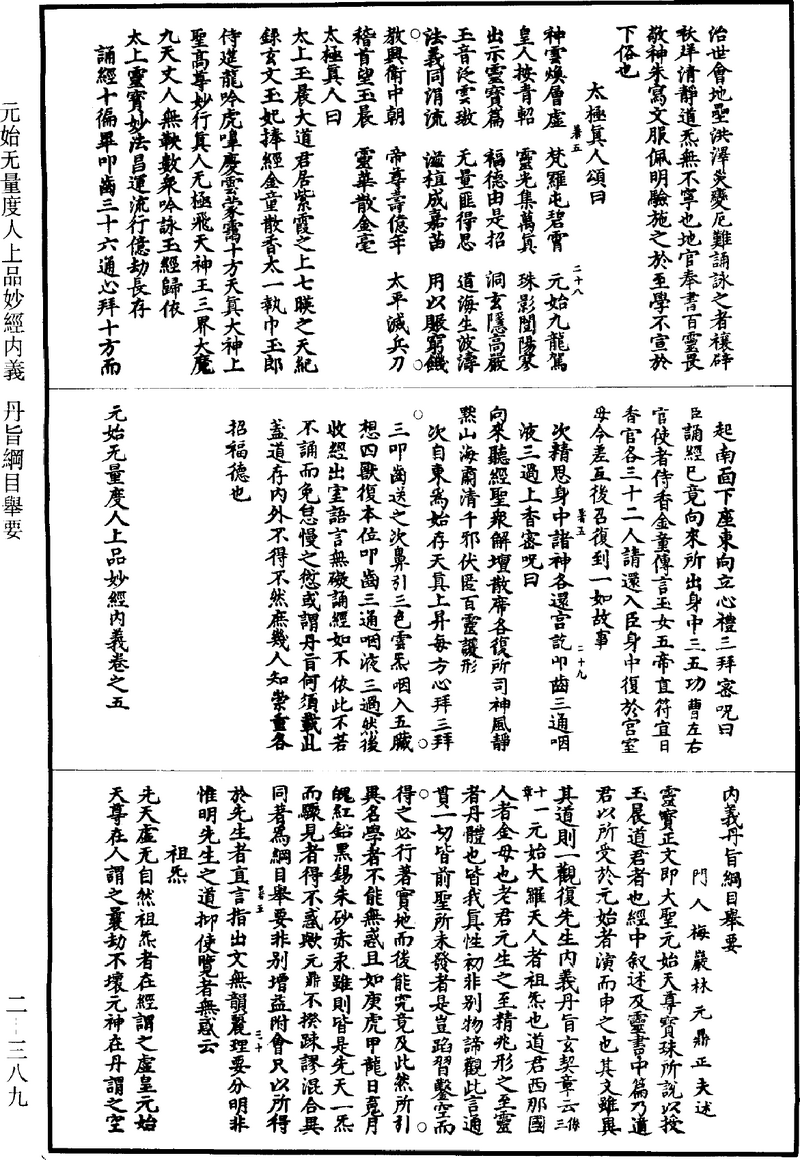 治世會地壘洪澤災變厄難誦詠之者禳碎
袄祥清靜道炁無不寧也地官奉書百靈畏
敬神朱寫文服佩明驗施之於至學不宣於
下俗也
太極真人頌曰
神雲煥層虛　梵羅屯碧霄　元始九龍駕
暑五　二十八
皇人按青軺　靈光集萬真　珠影閶陽寒
出示靈寶篇　福德由是招　洞玄隱高嚴
玉音泛雲璈　无量匪得思　道海生波濤
法義同涓流　溢植成嘉苗　用以賑窮饑
教興衛中朝　帝尊壽億年　太平滅兵刀
稽首望玉晨　靈華散金毫
太極真人曰
太上玉晨大道君居紫霞之上七暎之天紀
錄玄文玉妃捧經金童散香太一執巾玉郎
侍筵龍吟虎嘷慶雲蒙靄十方天真大神上
聖高尊妙行真人无極飛天神王三界大魔
九天丈人無鞅數衆吟詠玉經歸依
太上靈寶妙法昌運流行億劫長存
誦經十徧畢叩齒三十六通心拜十方而
起南面下座東向立心禮三拜密呪曰
臣誦經已竟向來所出身中三五功曹左右
官使者侍香金童傳言玉女五帝直符宜日
香官各三十二人請還入臣身中復於宮室
毋令差互後召復到一如故事
暑五　二十九
次精思身中諸神各還宮訖叩齒三通咽
液三過上香密呪曰
向來聽經聖衆解壇散席各復所司神風靜
黙山海肅清千邪伏匿百靈護形
次自東爲始存天真上昇每方心拜三拜
三叩齒送之次鼻引三色雲炁咽入五臟
想四獸復本位叩齒三通咽液三過然後
收經出室語言無礙誦經如不依此不若
不誦而免怠慢之愆或謂丹旨何須載此
蓋道存内外不得不然庶幾人知崇重各
招福德也
元始无量度人上品妙經内義卷之五
内義丹旨綱目舉要
門人梅巖林元鼎正夫述
靈寶正文即大聖元始天尊寶珠所說以授
玉晨道君者也經中叙述及靈書中篇乃道
君以所受於元始者演而申之也其文雖異
其道則一觀復先生内義丹旨玄契章云係三
十一章元始大羅天人者祖炁也道君西那國
人者金母也老君元生之至精兆形之至靈
者丹體也皆我真性初非别物諦觀此言通
貫一切皆前聖所未發者是豈蹈習鑿空而
得之必行著實地而後能究竟及此然所引
異名學者不能無惑且如庚虎甲龍日䰟月
魄紅鉛黑錫朱砂赤汞雖則皆是先天一炁
而驟見者得不惑歟元鼎不揆踈謬混合異
同著爲綱目舉要非别增益附會只以所得
暑五　三十
於先生者直言指出文無韻麗理要分明非
惟明先生之道抑使覽者無惑云
祖炁
先天虛无自然祖炁者在經謂之虛皇元始
天尊在人謂之曩劫不壞元神在丹謂之空
元始无量度人上品妙經内義　丹旨綱目舉要
二—三八九